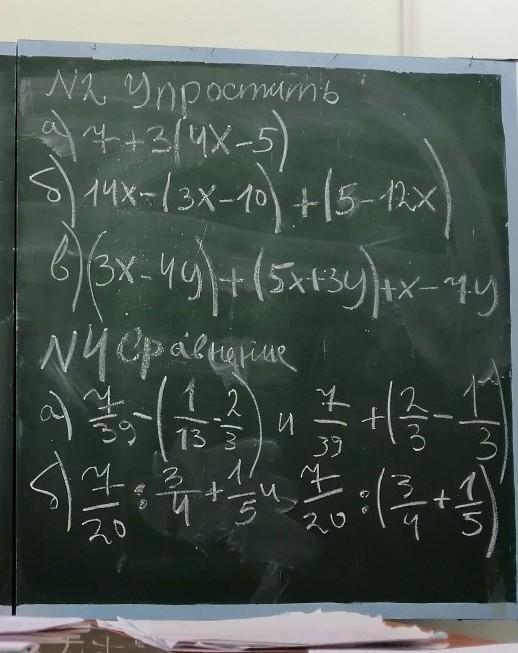 N2 Упростить
а) 7+3(4x-5)
б) 14x-(3x-10)+(5-12x)
в) (3x-4y)+(5x+3y)+x-7y
N4 Сравнение
а) 7/39-(1/13-2/3) и 7/39+(2/3-1/3)
б) 7/20:3/4+1/5 и 7/20:(3/4+1/5)